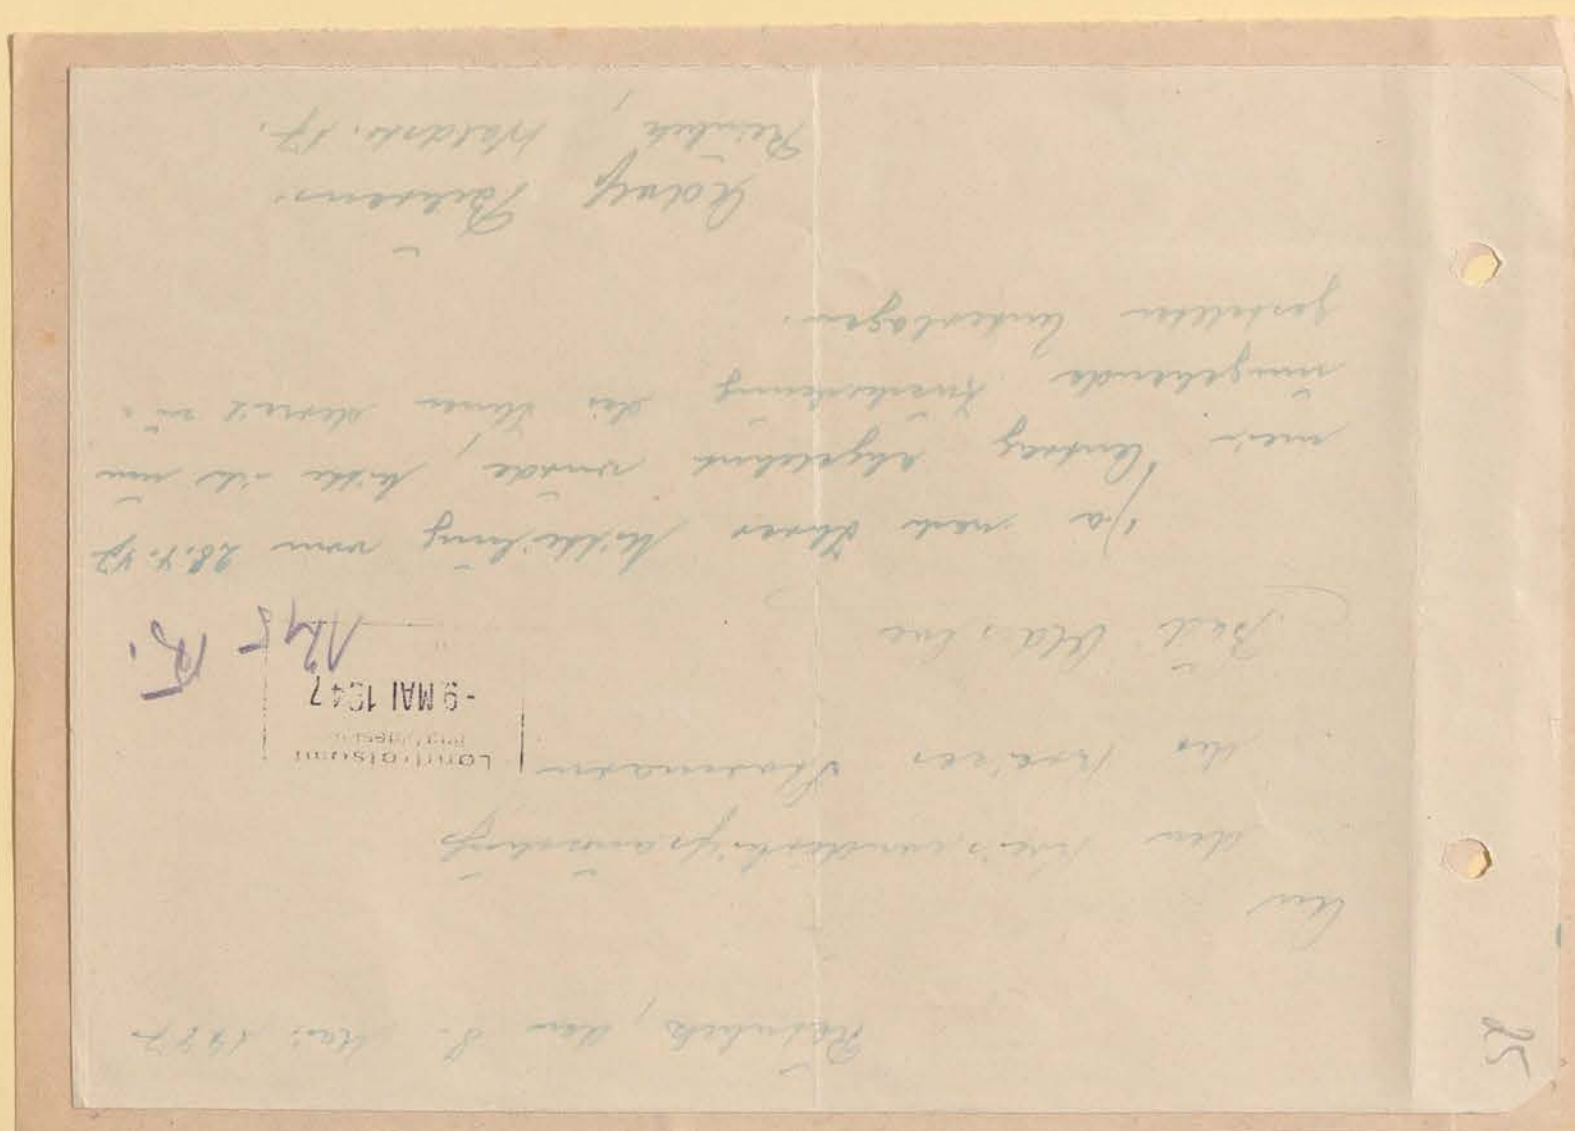 25
Reinbek, den 8. Mai 1947
An
den Kreissonderhilfsausschuß
des Kreises Stormarn
Landratsamt
-9 MAI 1947
Bad Oldesloe
Da nach Ihrer Mitteilung vom 28.4.47
mein Antrag abgelehnt wurde, bitte ich um
umgehende Zusendung der Ihnen derzeit zu-
gestellten Unterlagen.
Adolf Behrens.
Reinbek, Waldstr. 17.